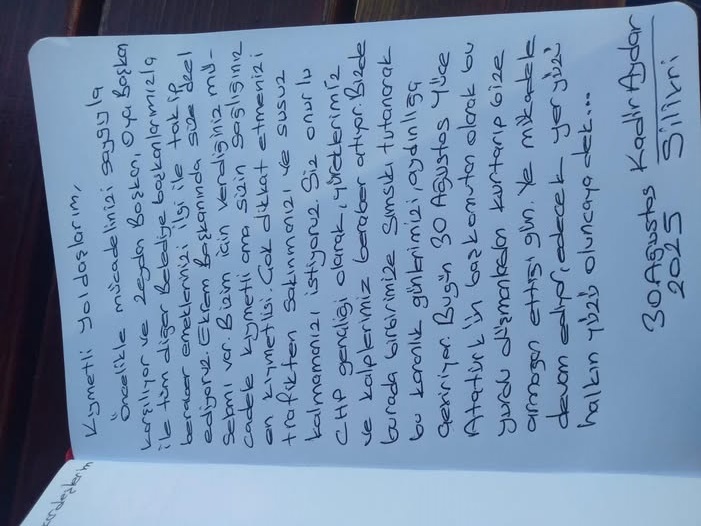 Kıymetli yoldaşlarım,
Öncelikle mücadelinizi saygıyla
karşılıyor ve Zeydan Başkan, Oya Başkan
ile tüm diğer Belediye başkanlarımızla
beraber emeklerinizi ilgi ile takip
ediyoruz. Ekrem Başkanında size özel
selamı var. Bizim için verdiğiniz mü-
cadele kıymetli ama sizin sağlığınız
en kıymetlisi. Çok dikkat etmenizi
trafikten sakınmanızı ve susuz
kalmamanızı istiyoruz. Siz onurlu
CHP gençliği olarak, yüreklerimiz
ve kalplerimiz beraber atıyor. Bizde
burada birbirimize sımsıkı tutanarak
bu karanlık günlerimizi, aydınlığa
çeviriyor. Bugün 30 Ağustos Yüce
Atatürk'ün başkomutan olarak bu
yurdu düşmanlardan kurtarıp bize
armağan ettiği gün. Ve mücadele
devam ediyor, edecek yer yüzü
halkın yüzü oluncaya dek...
30 Ağustos Kadir Aydar
2025 Silivri